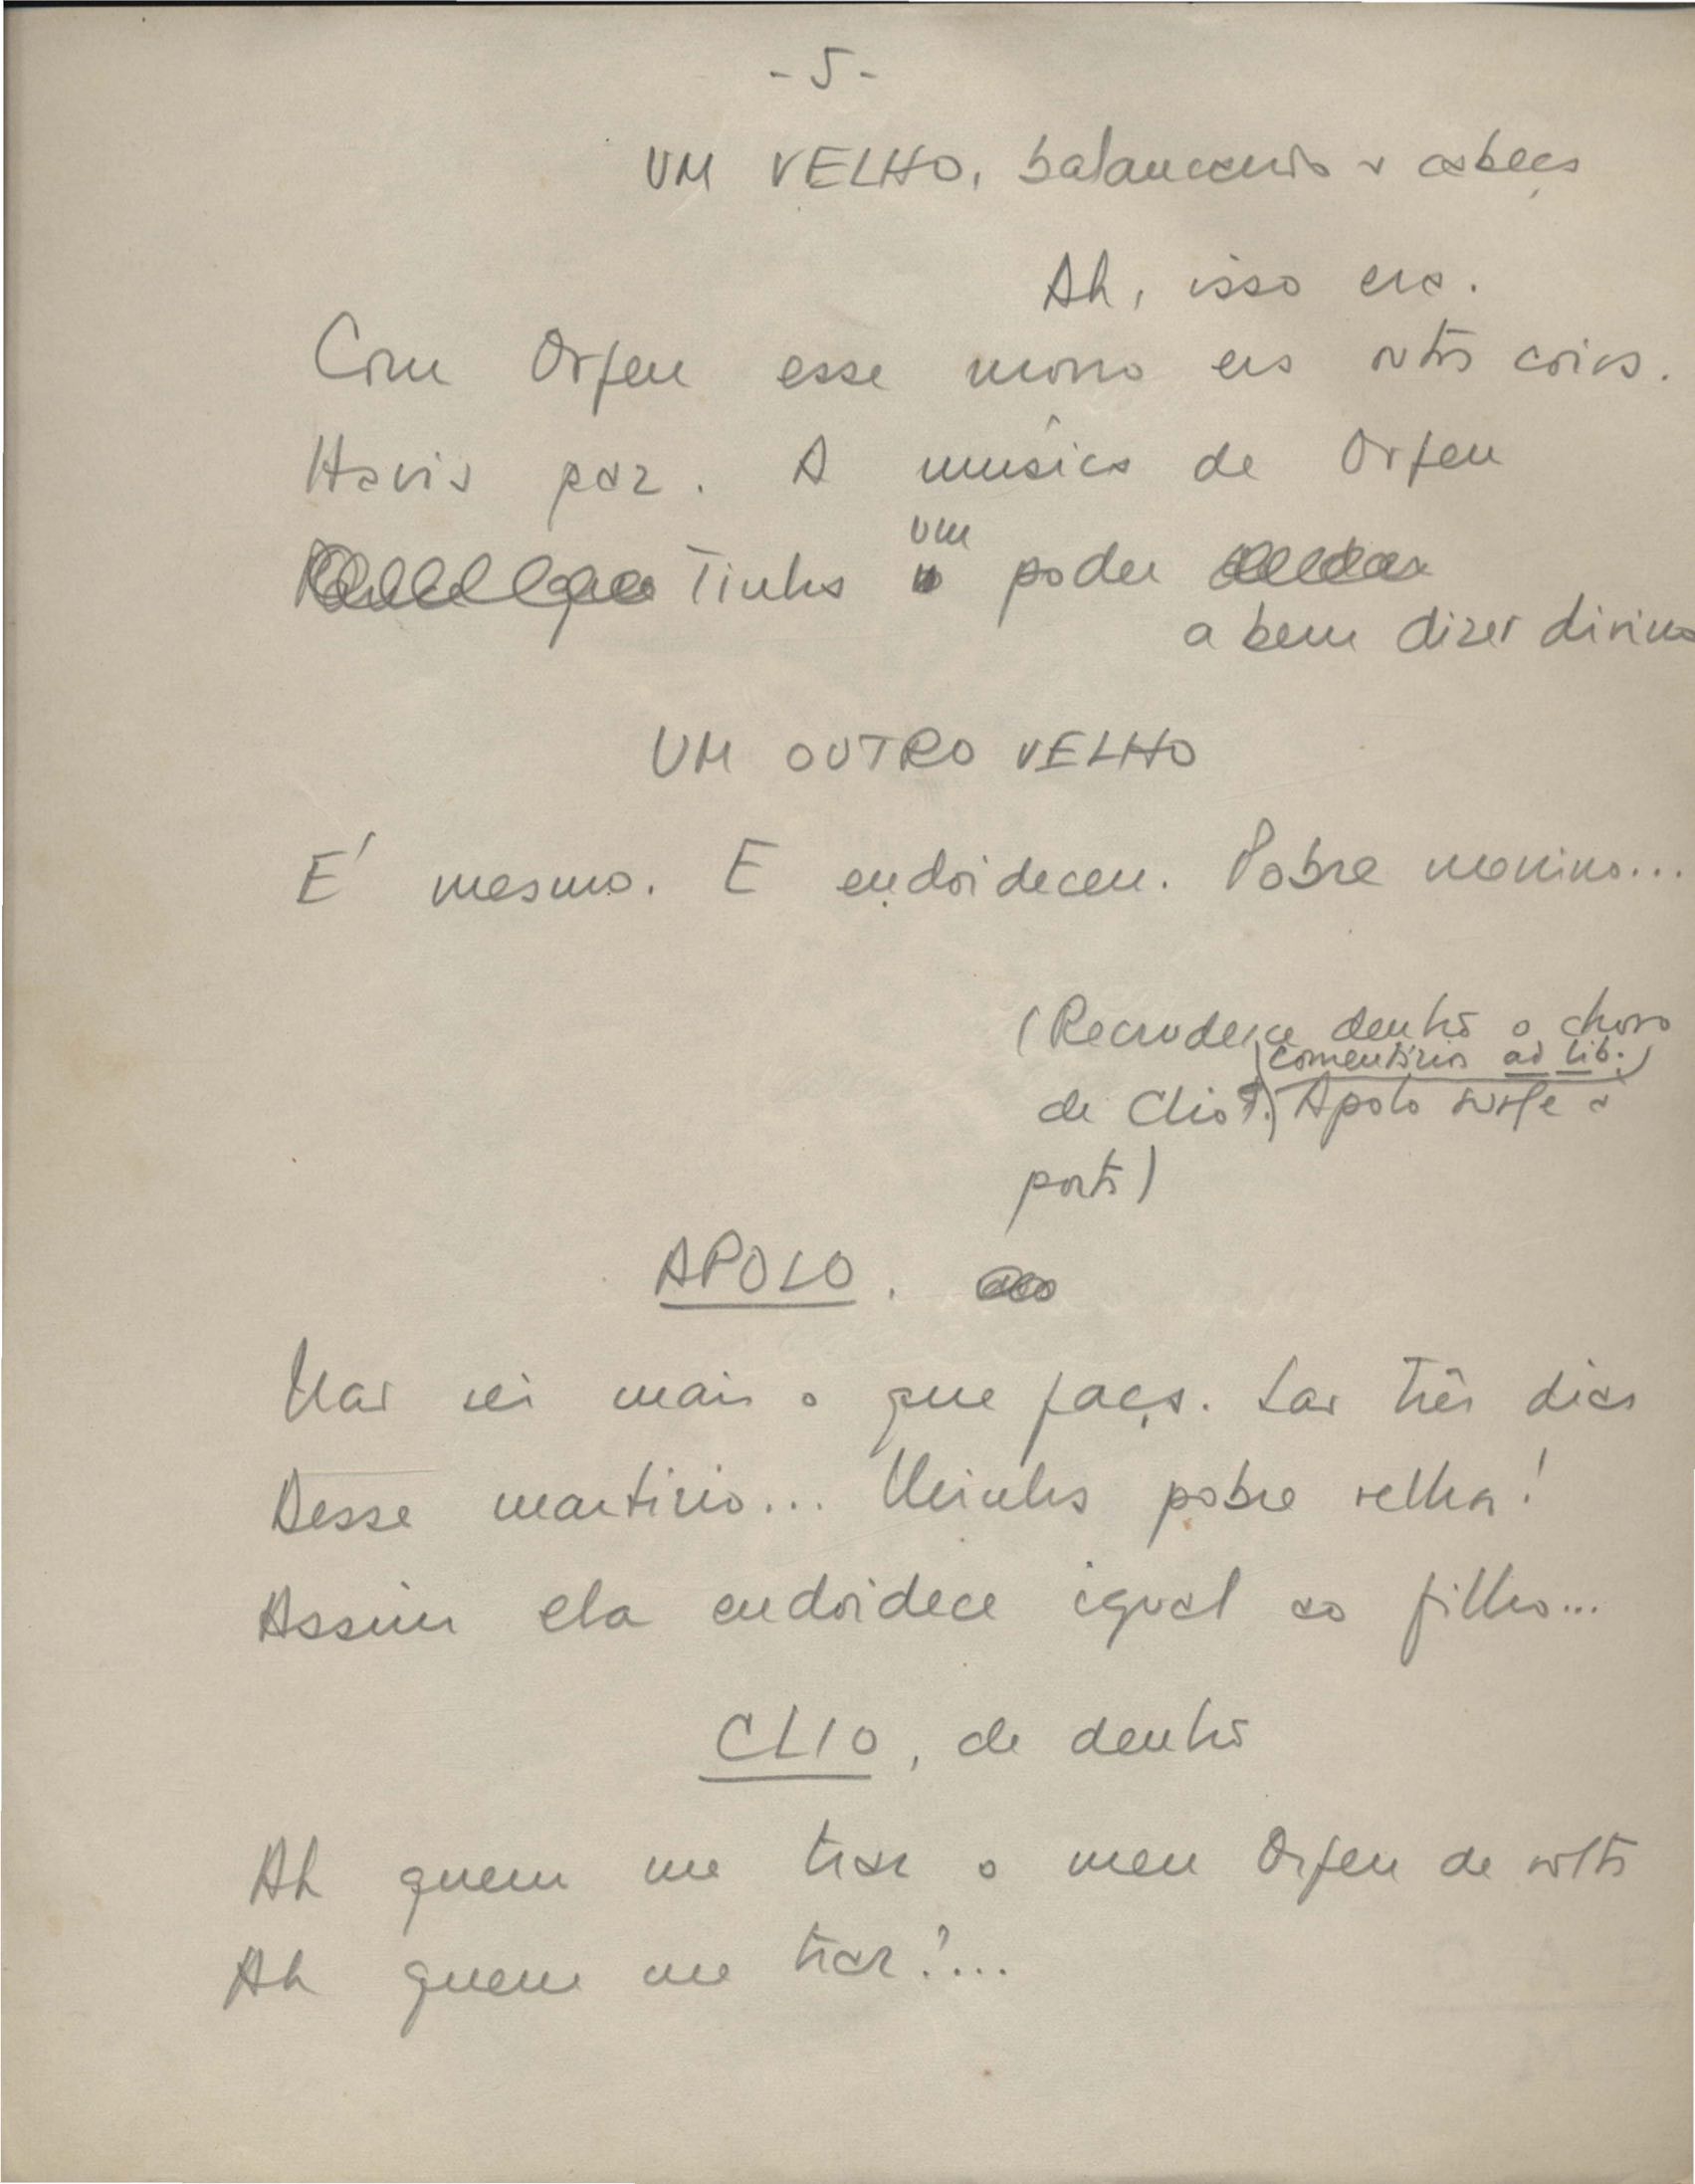 - 5 -
UM VELHO, balançando a cabeça
Ah, isso era.
Com Orfeu esse morro era outra coisa.
Havia paz. A música de Orfeu
um
Tinha poder
a bem dizer divino
UM OUTRO VELHO
E' mesmo. E endoideceu. Pobre menino...
(Recrudesce dentro o choro
(comentários ad lib.)
de Clio.) Apolo surge à
porta)
APOLO.
Não sei mais o que faça. São três dias
Desse martírio... Minha pobre velha!
Assim ela endoidece igual ao filho...
CLIO, de dentro
Ah quem me traz o meu Orfeu de volta
Ah quem me traz?...